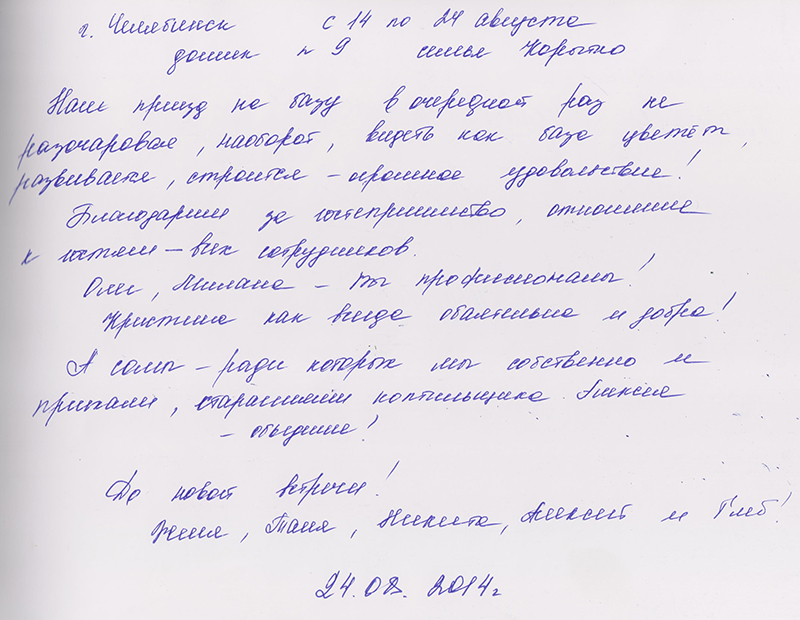 г. Челябинск с 14 по 24 августа
домик n 9 семья Корытко
Наш приезд на базу в очередной раз не
разочаровал, наоборот, видеть как база цветёт,
развивается, строится – огромное удовольствие!
Благодарим за гостеприимство, отношение
к гостям – всех сотрудников.
Олег, Милана – Вы профессионалы!
Кристина как всегда обаятельна и добра!
А сомы – ради которых мы собственно и
приехали, стараниями коптильщика Алексея
– объедение!
До новой встречи!
Женя, Таня, Никита, Алексей и Глеб!
24.08.2014г